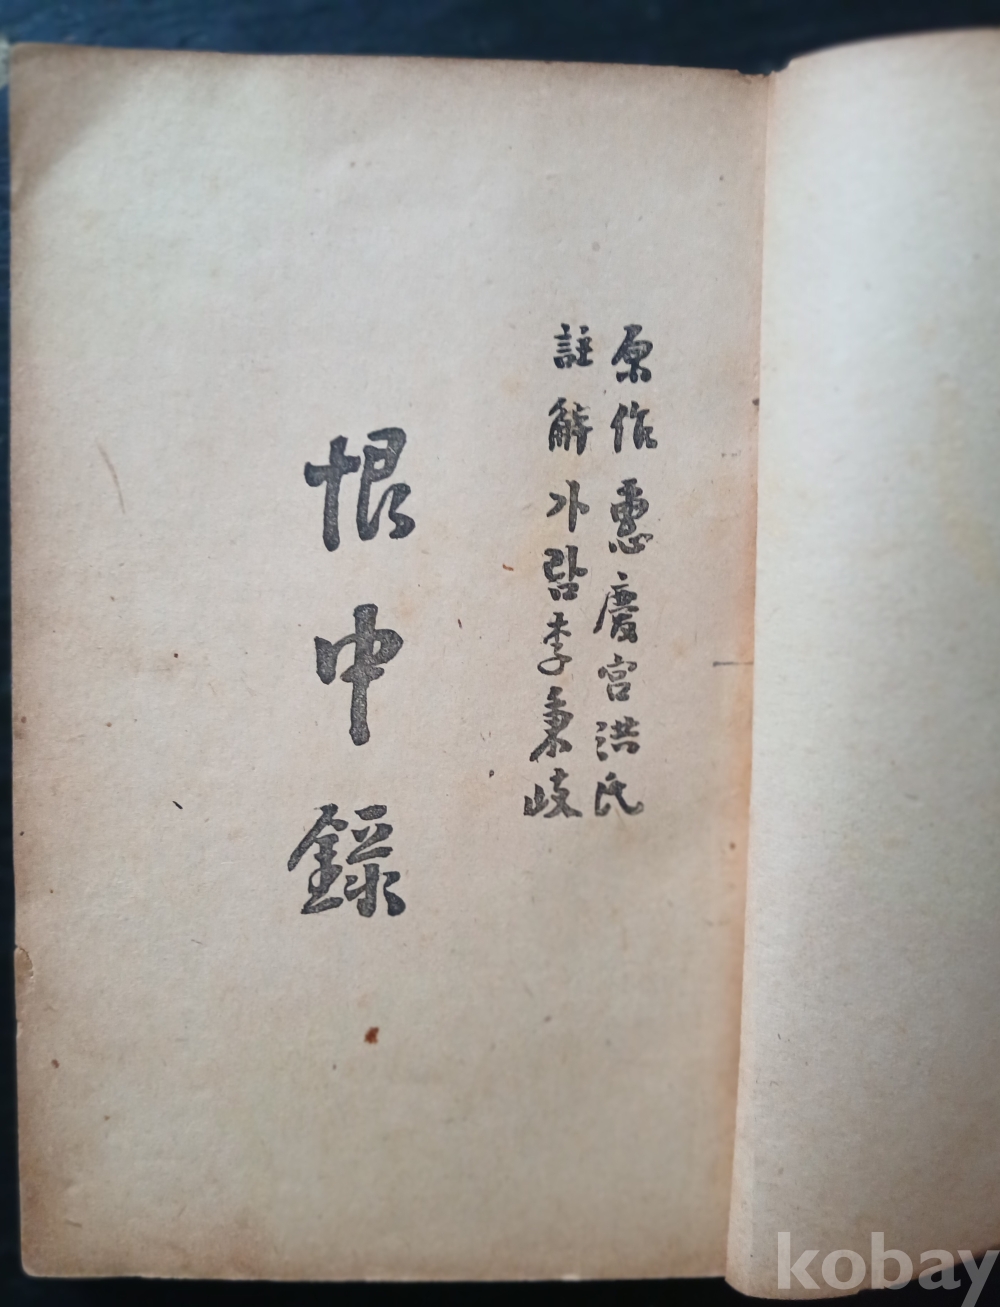 原作 惠慶宮洪氏
註解 가람 李秉岐
恨中錄
kobay